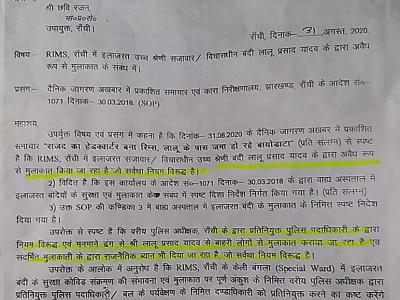 श्री छवि रंजन,
भा०प्र०से०
उपायुक्त, राँची।
राँची, दिनांक- 31 अगस्त, 2020.
विषय- RIMS, राँची में इलाजरत उच्च श्रेणी सजावार/ विचाराधीन बंदी लालू प्रसाद यादव के द्वारा अवैध
रूप से मुलाकात के संबंध में।
प्रसंग:- दैनिक जागरण अखबार में प्रकाशित समाचार एवं कारा निरीक्षणालय, झारखण्ड, राँची के आदेश सं०-
1071 दिनांक- 30.03.2018. (SOP)
महाशय,
उपर्युक्त विषय एवं प्रसंग में कहना है कि दिनांक- 31.08.2020 के दैनिक जागरण अखबार में प्रकाशित
समाचार "राजद का हेडक्वार्टर बना रिम्स, लालू के पास जमा हो रहे बायोडाटा" (प्रति संलग्न) से स्पष्ट
है कि RIMS, राँची में इलाजरत सजावार/ विचाराधीन उच्च श्रेणी बंदी लालू प्रसाद यादव के द्वारा अवैध रूप
से मुलाकात किया जा रहा है जो सर्वथा नियम विरूद्ध है।
2) विदित है कि इस कार्यालय के आदेश सं०-1071 दिनांक- 30.03.2018 के द्वारा वाह्य अस्पताल में
इलाजरत बंदियों के सुरक्षा एवं मुलाकात के संबंध में स्पष्ट दिशा निर्देश निर्गत किया गया है। (प्रति संलग्न)
3) उक्त SOP की कण्डिका 3 में वाह्य अस्पताल में इलाजरत बंदियों के मुलाकात के निमित्त स्पष्ट निदेश
दिया गया है।
उपरोक्त से स्पष्ट है कि वरीय पुलिस अधीक्षक, राँची के द्वारा प्रतिनियुक्त पुलिस पदाधिकारी के द्वारा
नियम विरूद्ध एवं मनमाने ढंग से श्री लालू प्रसाद यादव से बाहरी लोगों से मुलाकात कराया जा रहा है एवं
संदर्भित मुलाकाती के द्वारा राजनैतिक ब्यान भी दिया जा रहा है, जो सर्वथा नियम विरूद्ध है।
उपरोक्त के आलोक में अनुरोध है कि RIMS, राँची के केली बंगला (Special Ward) में इलाजरत
बंदी के सुरक्षा कोविड संक्रमण की संभावना एवं मुलाकात पर पूर्ण अंकुश के निमित्त वरीय पुलिस अधीक्षक द्वारा
प्रतिनियुक्त पुलिस पदाधिकारी/ बल के पर्यवेक्षण के निमित्त दण्डाधिकारी को प्रतिनियुक्त करने का कष्ट